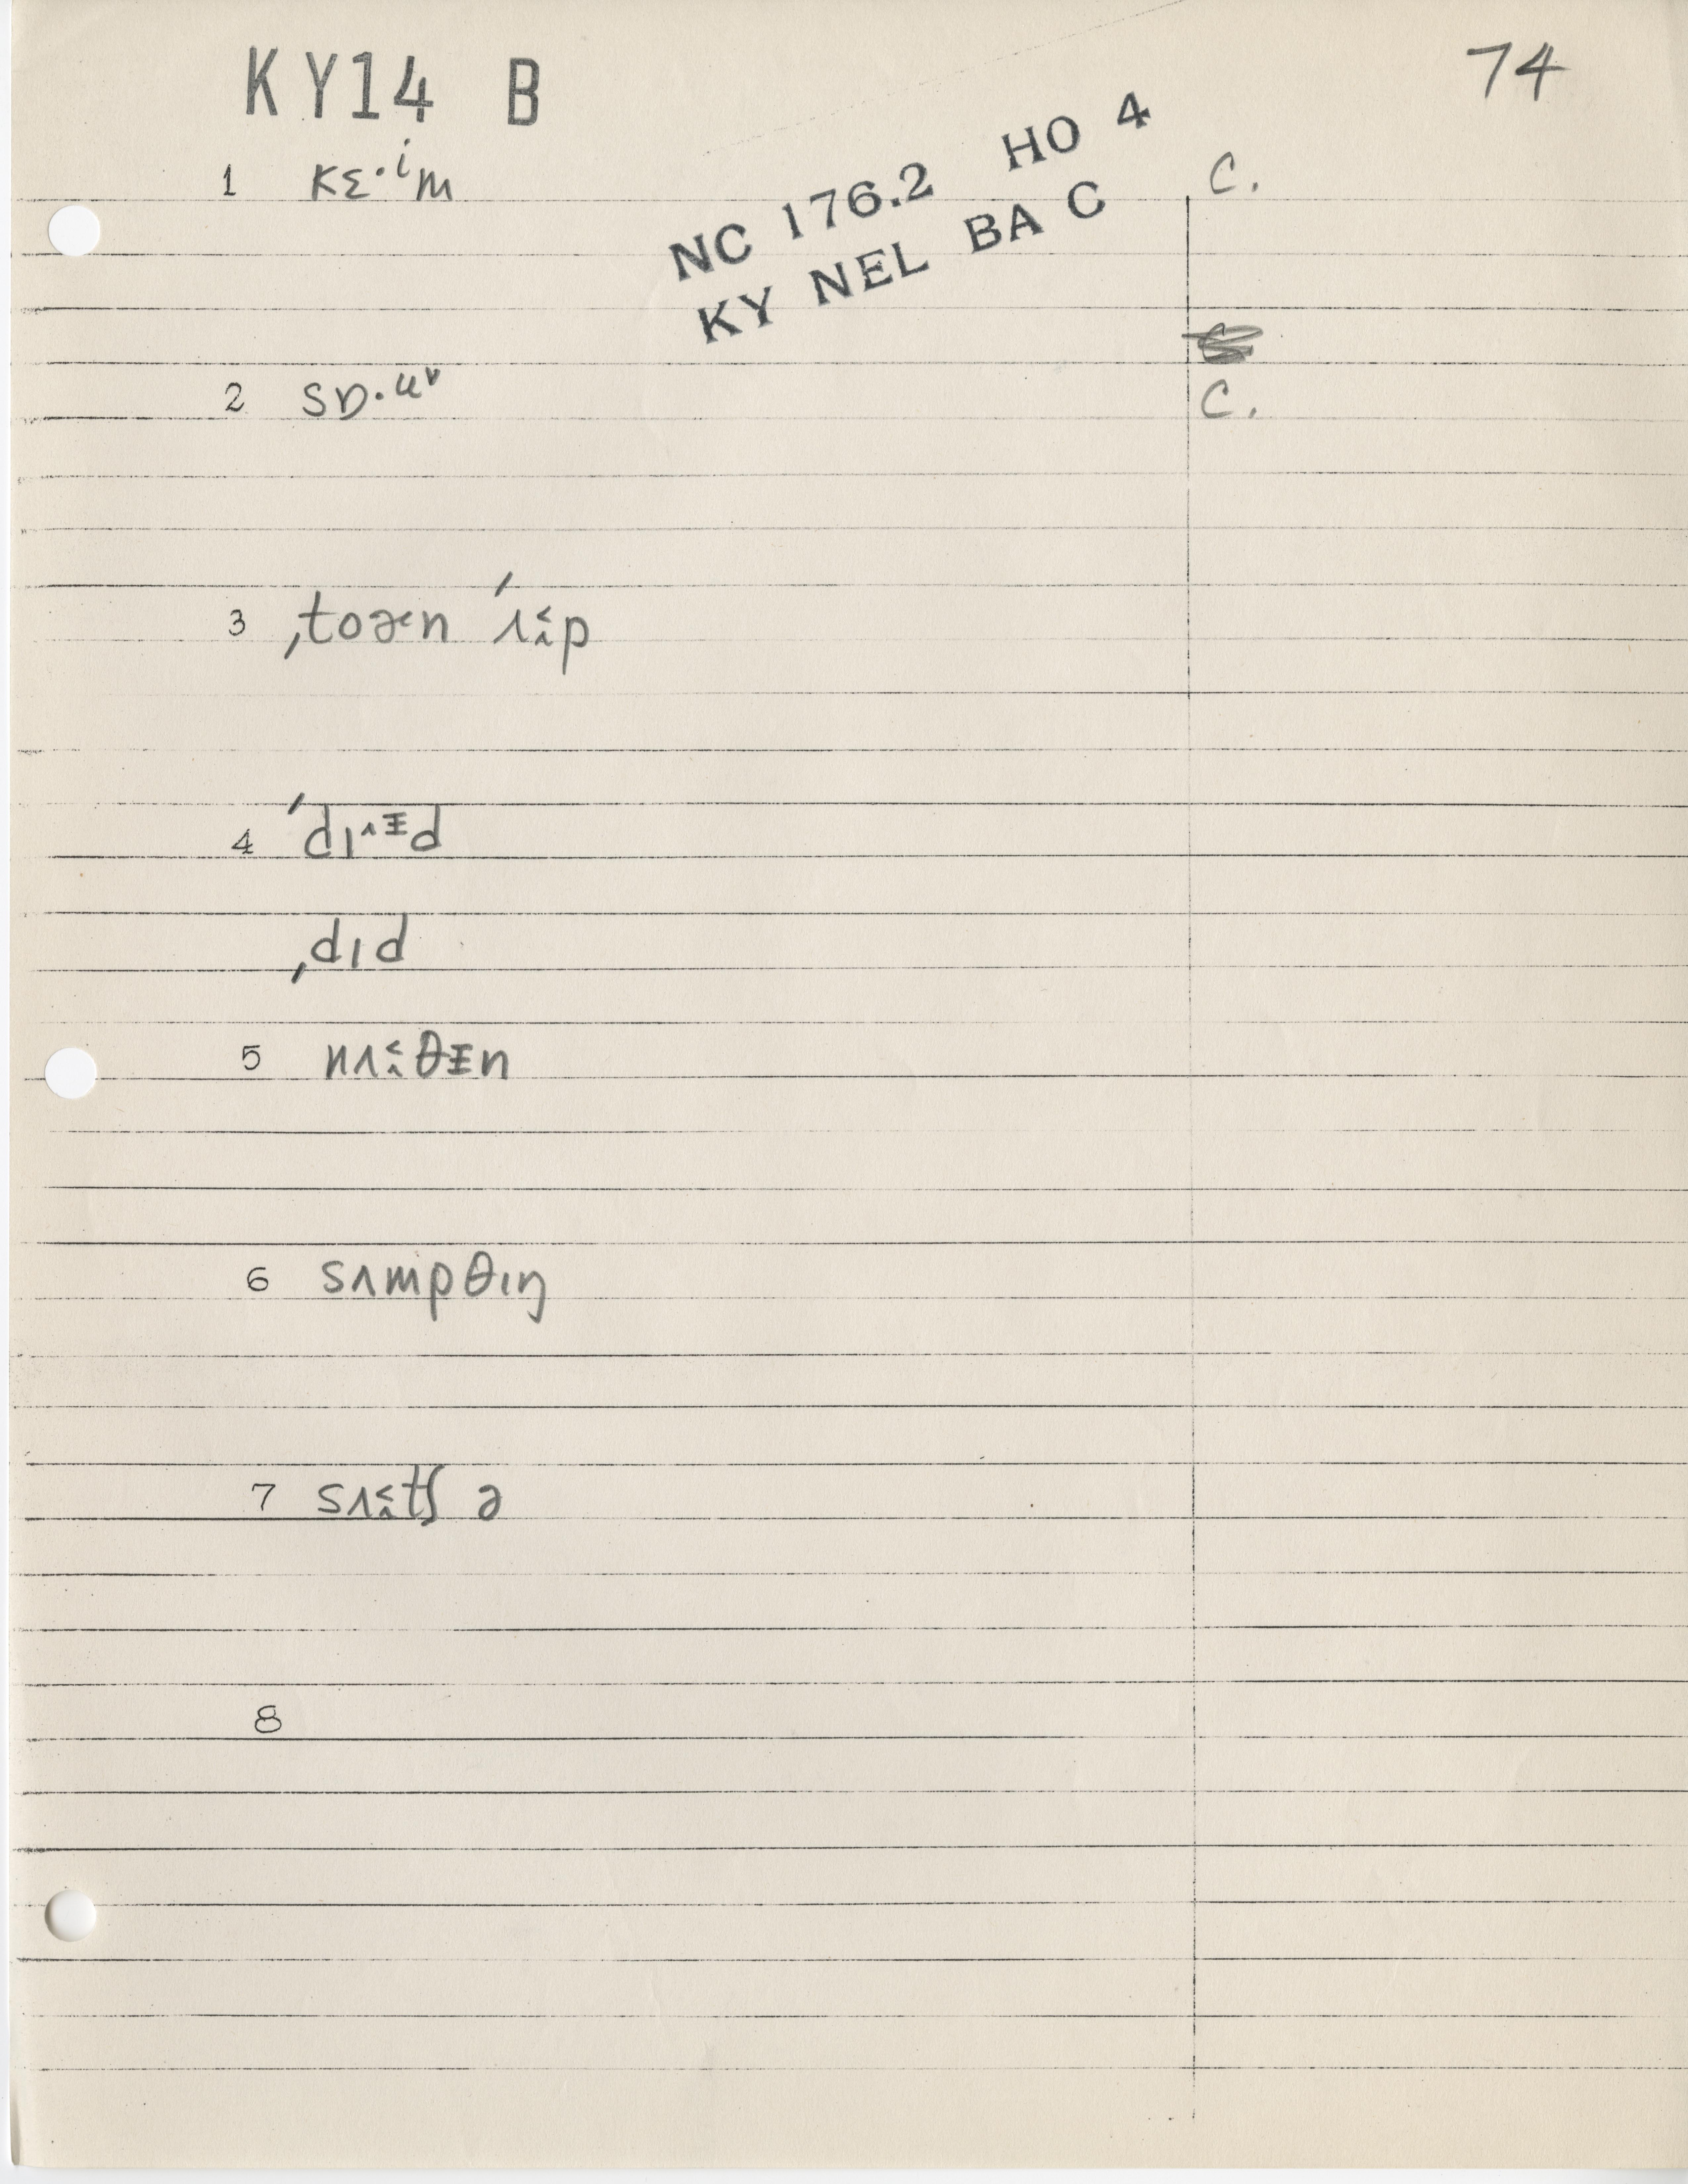 KY14 B
74
NC 176.2 HO 4
KY NEL BA C
1 kɛ·ⁱm C.
2 sɒ·ᵘ˅ C.
3 ˌtoɚ˂n ˈʌ˔p
4 ˈdɪ˄ᵻd
ˌdɪd
5 nʌθᵻn
6 sʌmpθɪŋ
7 sʌtʃ ə
8